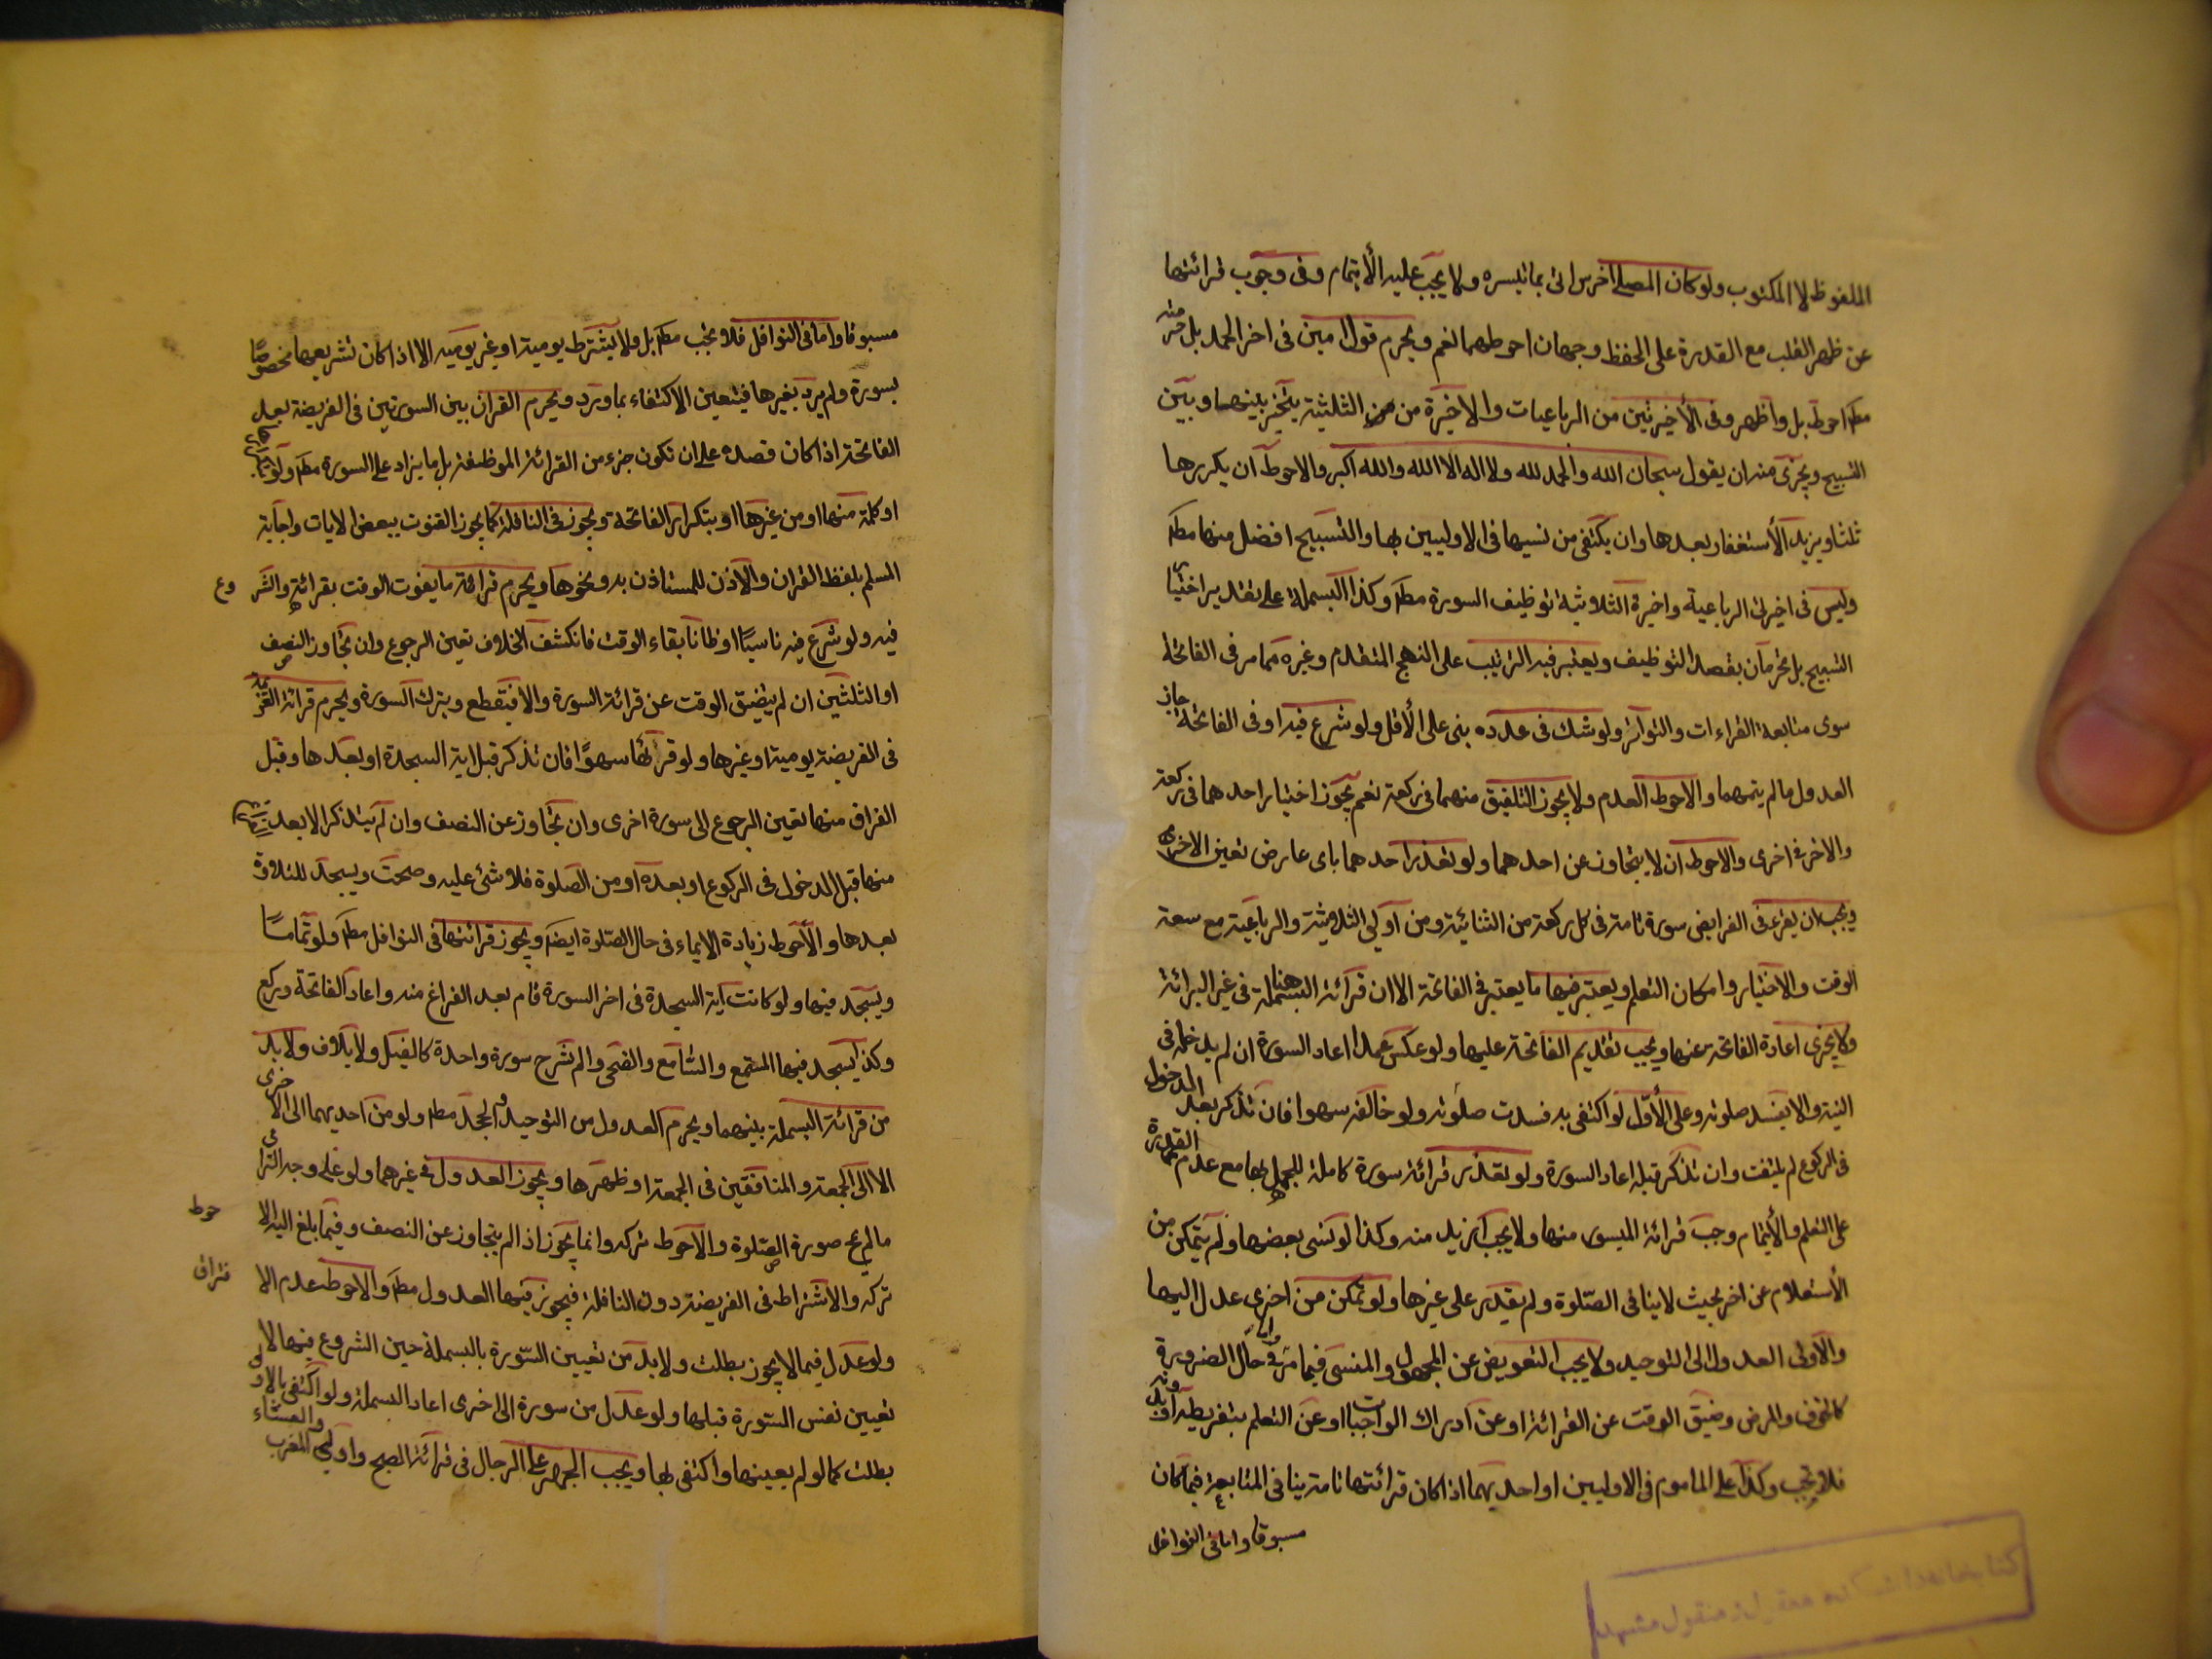 الملفوظ لا المكتوب ولو كان المصلي اخرس اتى بما تيسره ولا يجب عليه الأيتمام وفى وجوب قرائتها
عن ظهر القلب مع القدرة على الحفظ وجهان احوطهما نعم ويحرم قول امين فى اخر الحمد بل
مط احوط بل واظهر وفى الأخيرتين من الرباعيات والاخيرة من الثلثية يتخير بينها وبين
التسبيح ويجزى منه ان يقول سبحان الله والحمد لله ولا اله الا الله والله اكبر والاحوط ان يكررها
ثلثا ويزيد الأستغفار بعدها وان يكتفى من نسيها فى الاوليين بها والتسبيح افضل منها مط
وليس فى اخيرتى الرباعية واخيرة الثلاثية توظيف السورة مط وكذا البسملة على تقدير اختيا
التسبيح بل يحرمان بقصد التوظيف ويعتبر فيه الترتيب على النهج المتقدم وغيره مما مر فى الفاتحة
سوى متابعة القراءات والتواتر ولو شك فى عدده بنى على الأقل ولو شرع فيه او فى الفاتحة جاز
العدول ما لم يتمهما والاحوط العدم ولا يجوز التلفيق منهما فى ركعة نعم يجوز اختيار احدهما فى ركعة
والاخر فى اخرى والاحوط ان لا يتجاوز عن احدهما ولو تعذر احدهما باى عارض تعين الاخر
ويجب ان يقرء فى الفرايض سورة تامة فى كل ركعة من الثنائية ومن اولى الثلاثية والرباعية مع سعة
الوقت والاختيار وامكان التعلم ويعتبر فيها ما يعتبر فى الفاتحة الا ان قرائة البسملة هنا فى غير البرائة
ولا يجزى اعادة الفاتحة عنها ويجب تقديم الفاتحة عليها ولو عكس عمدا اعاد السورة ان لم يدخله فى
النية والا يفسد صلوته وعلى الأول لو اكتفى به فسدت صلوته ولو خالف سهوا فان تذكر بعد الدخول
فى الركوع لم يلتفت وان تذكر قبله اعاد السورة ولو تعذر قرائة سورة كاملة للجهل بها مع عدم القدرة
على التعلم والأيتمام وجب قرائة الميسور منها ولا يجب ازيد منه وكذا لو نسى بعضها ولم يتمكن من
الأستعلام عن اخر بحيث لا ينافى الصلوة ولم يقدر على غيرها ولو تمكن من اخرى عدل اليها
والأولى العدول الى التوحيد ولا يجب التعويض عن المجهول والمنسى فيما مر واما فى حال الضرورة
كالخوف والمرض وضيق الوقت عن القرائة او عن ادراك الواجبات او عن التعلم بتفريطه او بدونه
فلا يجب وكذا على الماموم فى الاوليين او احديهما اذا كان قرائتها تامة ينافى المتابعة فيما كان
مسبوقا واما فى النوافل
مسبوقا واما فى النوافل فلا يجب مط بل ولا يشترط يومية او غير يومية الا اذا كان تشريعها مخصوصا
بسورة ولم يرد بغيرها فيتعين الاكتفاء بما ورد ويحرم القران بين السورتين فى الفريضة بعد
الفاتحة اذا كان قصده على ان تكون جزء من القرائة الموظفة بل ما يزاد على السورة مط ولو
او كلمة منهما او من غيرها او بتكرار الفاتحة ويجوز فى النافلة كما يجوز القنوت ببعض الايات واجابة
المسلم بلفظ القران والاذن للمستاذن به ونحوها ويحرم قرائة ما يفوت الوقت بقرائته والشروع
فيه ولو شرع فيه ناسيا او ظانا بقاء الوقت فانكشف الخلاف تعين الرجوع وان تجاوز النصف
او الثلثين ان لم يتضيق الوقت عن قرائة السورة والا فيقطع ويترك السورة ويحرم قرائة العزيمة
فى الفريضة يومية او غيرها ولو قرأها سهوا فان تذكر قبل اية السجدة او بعدها وقبل
الفراق منها تعين الرجوع الى سورة اخرى وان تجاوز عن النصف وان لم يتذكر الا بعد
منها قبل الدخول فى الركوع او بعده او من الصلوة فلا شئ عليه وصحت ويسجد للتلاوة
بعدها والأحوط زيادة الايماء فى حال الصلوة ايضا ويجوز قرائتها فى النوافل مط ولو تماما
ويسجد فيها ولو كانت اية السجدة فى اخر السورة قام بعد الفراغ منه واعاد الفاتحة وركع
وكذا يسجد فيها المستمع والسامع والضحى والم نشرح سورة واحدة كالفيل ولايلاف ولا بد
من قرائة البسملة بينهما ويحرم العدول من التوحيد والجحد مط ولو من احديهما الى الاخرى
الا الى الجمعة والمنافقين فى الجمعة او ظهرها ويجوز العدول فى غيرهما ولو على وجه الترامى
ما لم يمح صورة الصلوة والاحوط تركه وانما يجوز اذا لم يتجاوز عن النصف وفيما بلغ اليه الاحوط
تركه والاشتراط فى الفريضة دون النافلة فيجوز فيها العدول مط والاحوط عدم الافتراق
ولو عدل فيما لا يجوز بطلت ولا بد من تعيين السورة بالبسملة حين الشروع فيها لا
تعيين نفس السورة قبلها ولو عدل من سورة الى اخرى اعاد البسملة ولو اكتفى بالاولى
بطلت كما لو لم يعينها واكتفى بها ويجب الجهر على الرجال فى قرائة الصبح واولى المغرب والعشاء